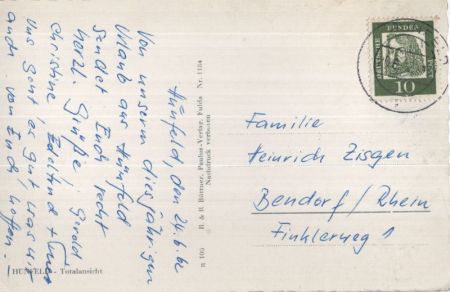 Hünfeld, den 24.6.62
Von unserem diesjährigen
Urlaub aus Hünfeld
sendet Euch recht
herzl. Grüße Gerold
Christine, +
Uns geht es gut, was wir
auch von Euch hoffen.
HÜNFELD - Totalansicht
B. & R. Büttner, Paulus-Verlag, Fulda Nr. 1184
Nachdruck verboten
DEUTSCHE BUNDESPOST
10
Familie
Heinrich Zisgen
Bendorf/Rhein
Finklerweg 1